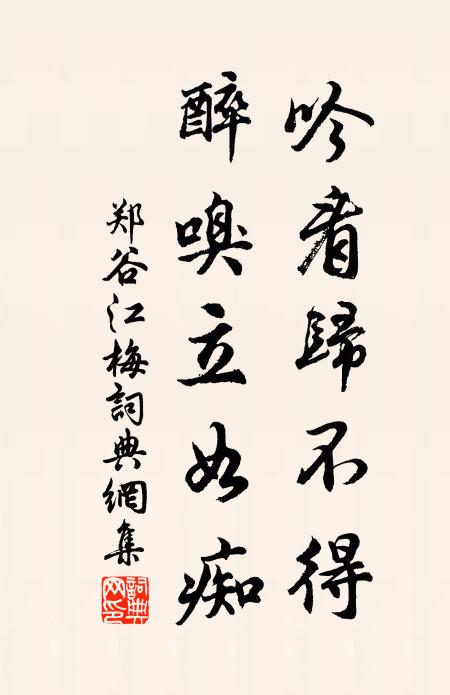 吟看歸不得
醉嗅立如痴
郑谷江梅詞典網集
詞典網印